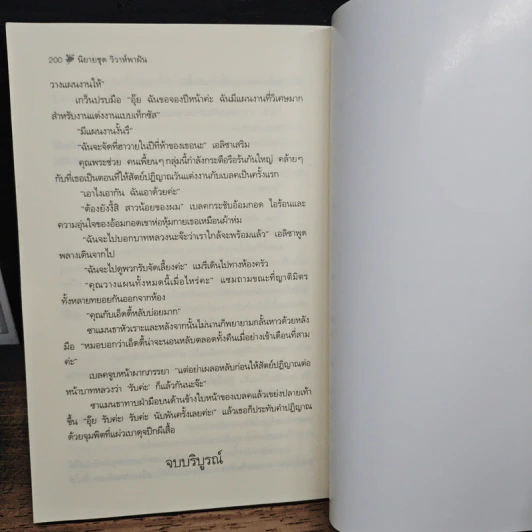 200 นิยายชุด วิวาห์พาฝัน
วางแผนงานให้"
เกวินปรบมือ "อุ๊ย ฉันขอจองปีหน้าค่ะ ฉันมีแผนงานที่วิเศษมาก
สำหรับงานแต่งงานแบบเท็กซัส"
"มีแผนงานงั้นรึ"
"ฉันจะจัดที่ฮาวายในปีที่ห้าของเธอนะ" เอลิซาเสริม
คุณพระช่วย คนเพี้ยนๆ กลุ่มนี้กำลังกระตือรือร้นกันใหญ่ คล้ายๆ
กับที่เธอเป็นตอนที่ให้สัตย์ปฏิญาณวันแต่งงานกับเบลคเป็นครั้งแรก
"เอาไงเอากัน ฉันเอาด้วยค่ะ"
"ต้องยังงี้สิ สาวน้อยของผม" เบลคกระชับอ้อมกอด ไอร้อนและ
ความอุ่นใจของอ้อมกอดเขาห่อหุ้มกายเธอเหมือนผ้าห่ม
"ฉันจะไปบอกบาทหลวงนะจ๊ะว่าเราใกล้จะพร้อมแล้ว" เอลิซาพูด
พลางเดินจากไป
"ฉันจะไปดูพวกรับจัดเลี้ยงค่ะ" แมรี่เดินไปทางห้องครัว
"คุณวางแผนทั้งหมดนี้เมื่อไหร่คะ" แซมถามขณะที่ญาติมิตร
ทั้งหลายทยอยกันออกจากห้อง
"คุณกับเอ็ดดี้หลับบ่อยมาก"
ซาแมนธาหัวเราะและหลังจากนั้นไม่นานก็พยายามกลั้นหาวด้วยหลัง
มือ "หมอบอกว่าเอ็ดดี้น่าจะนอนหลับตลอดทั้งคืนเมื่อย่างเข้าเดือนที่สาม
ค่ะ"
เบลคจูบหน้าผากภรรยา "แต่อย่าเผลอหลับก่อนให้สัตย์ปฏิญาณต่อ
หน้าบาทหลวงว่า 'รับค่ะ' ก็แล้วกันนะจ๊ะ"
ซาแมนธาทาบฝ่ามือบนด้านข้างใบหน้าของเบลคแล้วเขย่งปลายเท้า
ขึ้น "อุ๊ย รับค่ะ! รับค่ะ นับพันครั้งเลยค่ะ!" แล้วเธอก็ประทับคำปฏิญาณ
ด้วยจุมพิตที่แผ่วเบาดุจปีกผีเสื้อ
จบบริบูรณ์